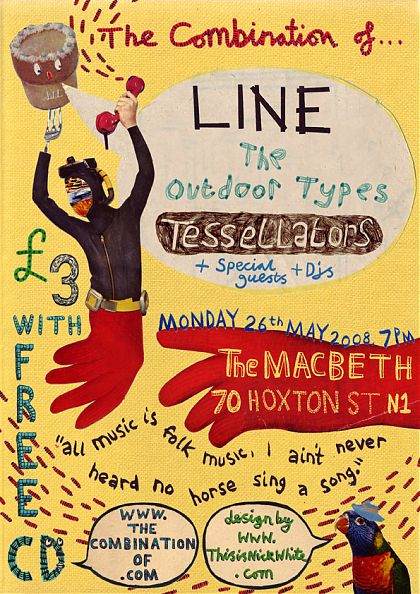 The Combination of...
LINE
The
Outdoor Types
Tessellators
+ Special guests + Djs
£3
WITH
FREE
CD
MONDAY 26th MAY 2008, 7PM
The MACBETH
70 HOXTON ST N1
"all music is folk music, I ain't never
heard no horse sing a song."
WWW.
THE
COMBINATION
OF
.COM
design by
WWW.
ThisisNickWhite
.com